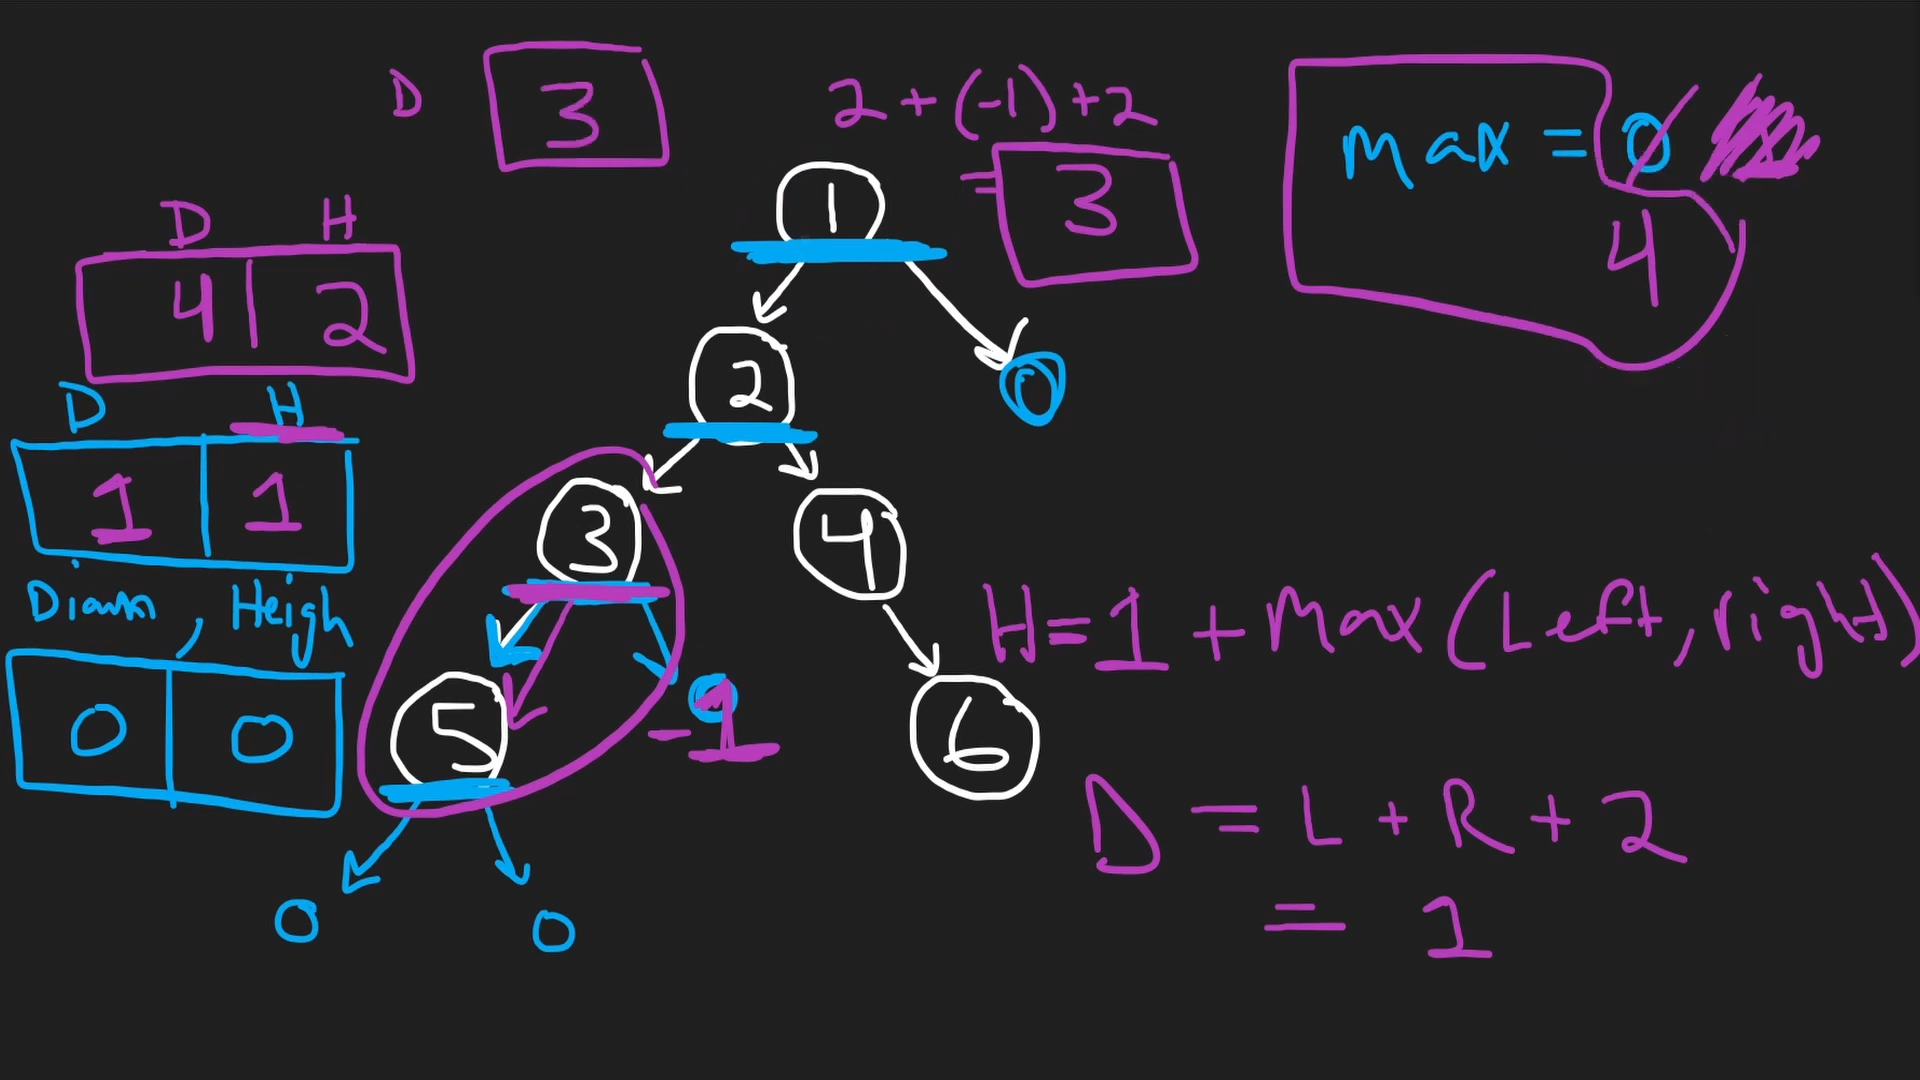 D 3
2 + (-1) + 2
= 3
max = 0
4
D H
4 2
D H
1 1
Diam , Heigh
0 0
1
2
0
3
4
5
6
-1
0
0
H = 1 + Max (Left, right)
D = L + R + 2
= 1